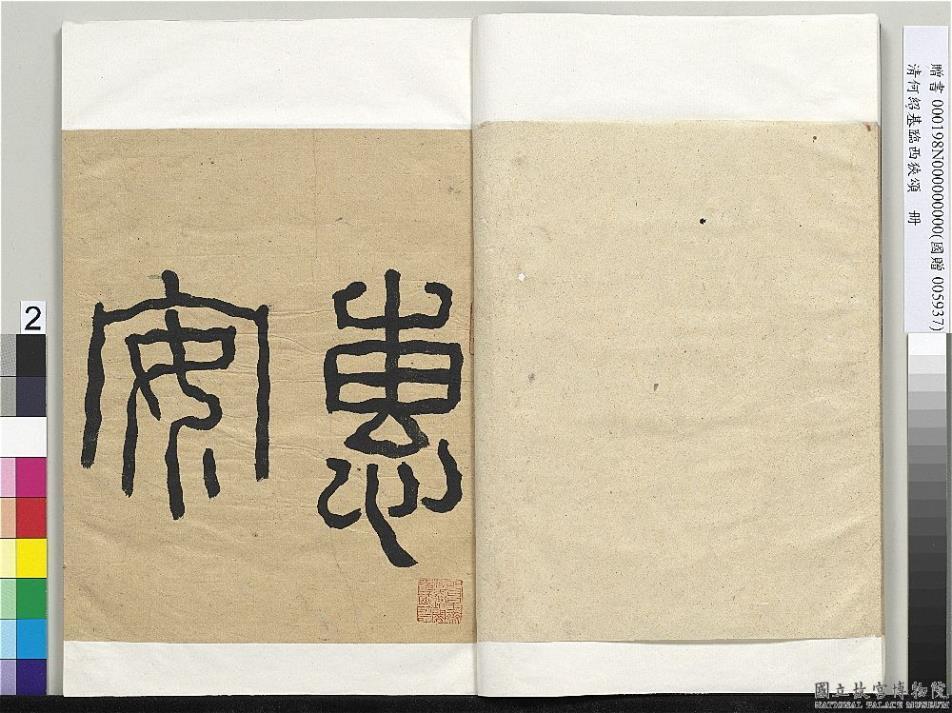 贈書 000198N000000000(國贈 005937)
清何紹基臨西狹頌 冊
惠安
2
國立故宮博物院
NATIONAL PALACE MUSEUM